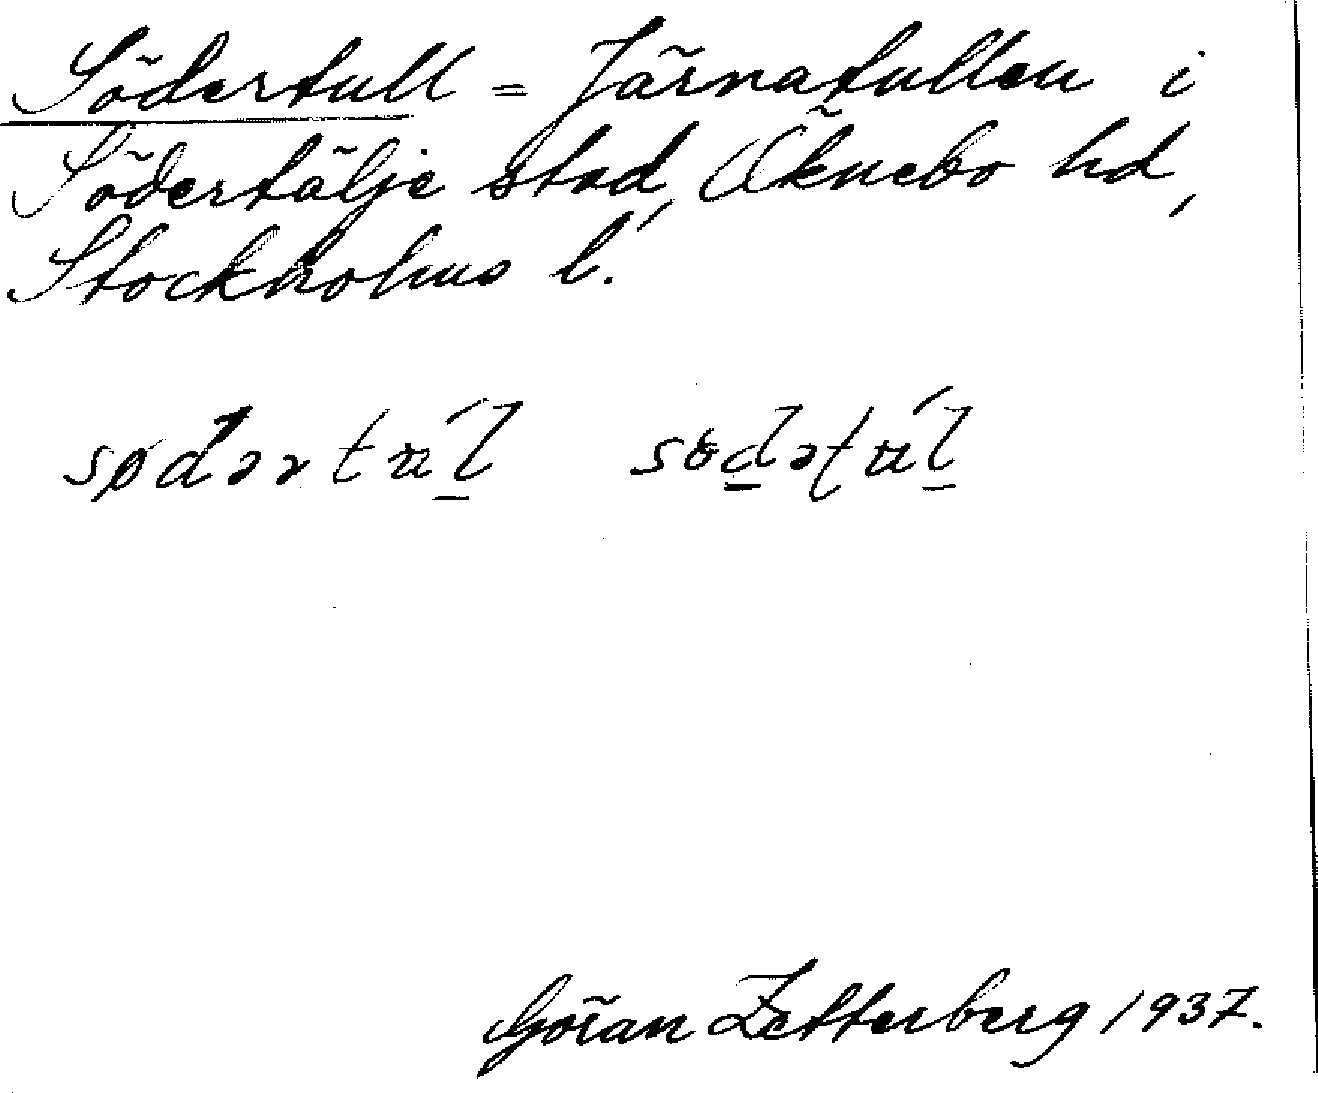 Södertull = Järnatullen i
Södertälje stad, Öknebo hd,
Stockholms l.
sødərtʉ́l södətʉ́l
Göran Zetterberg 1937.